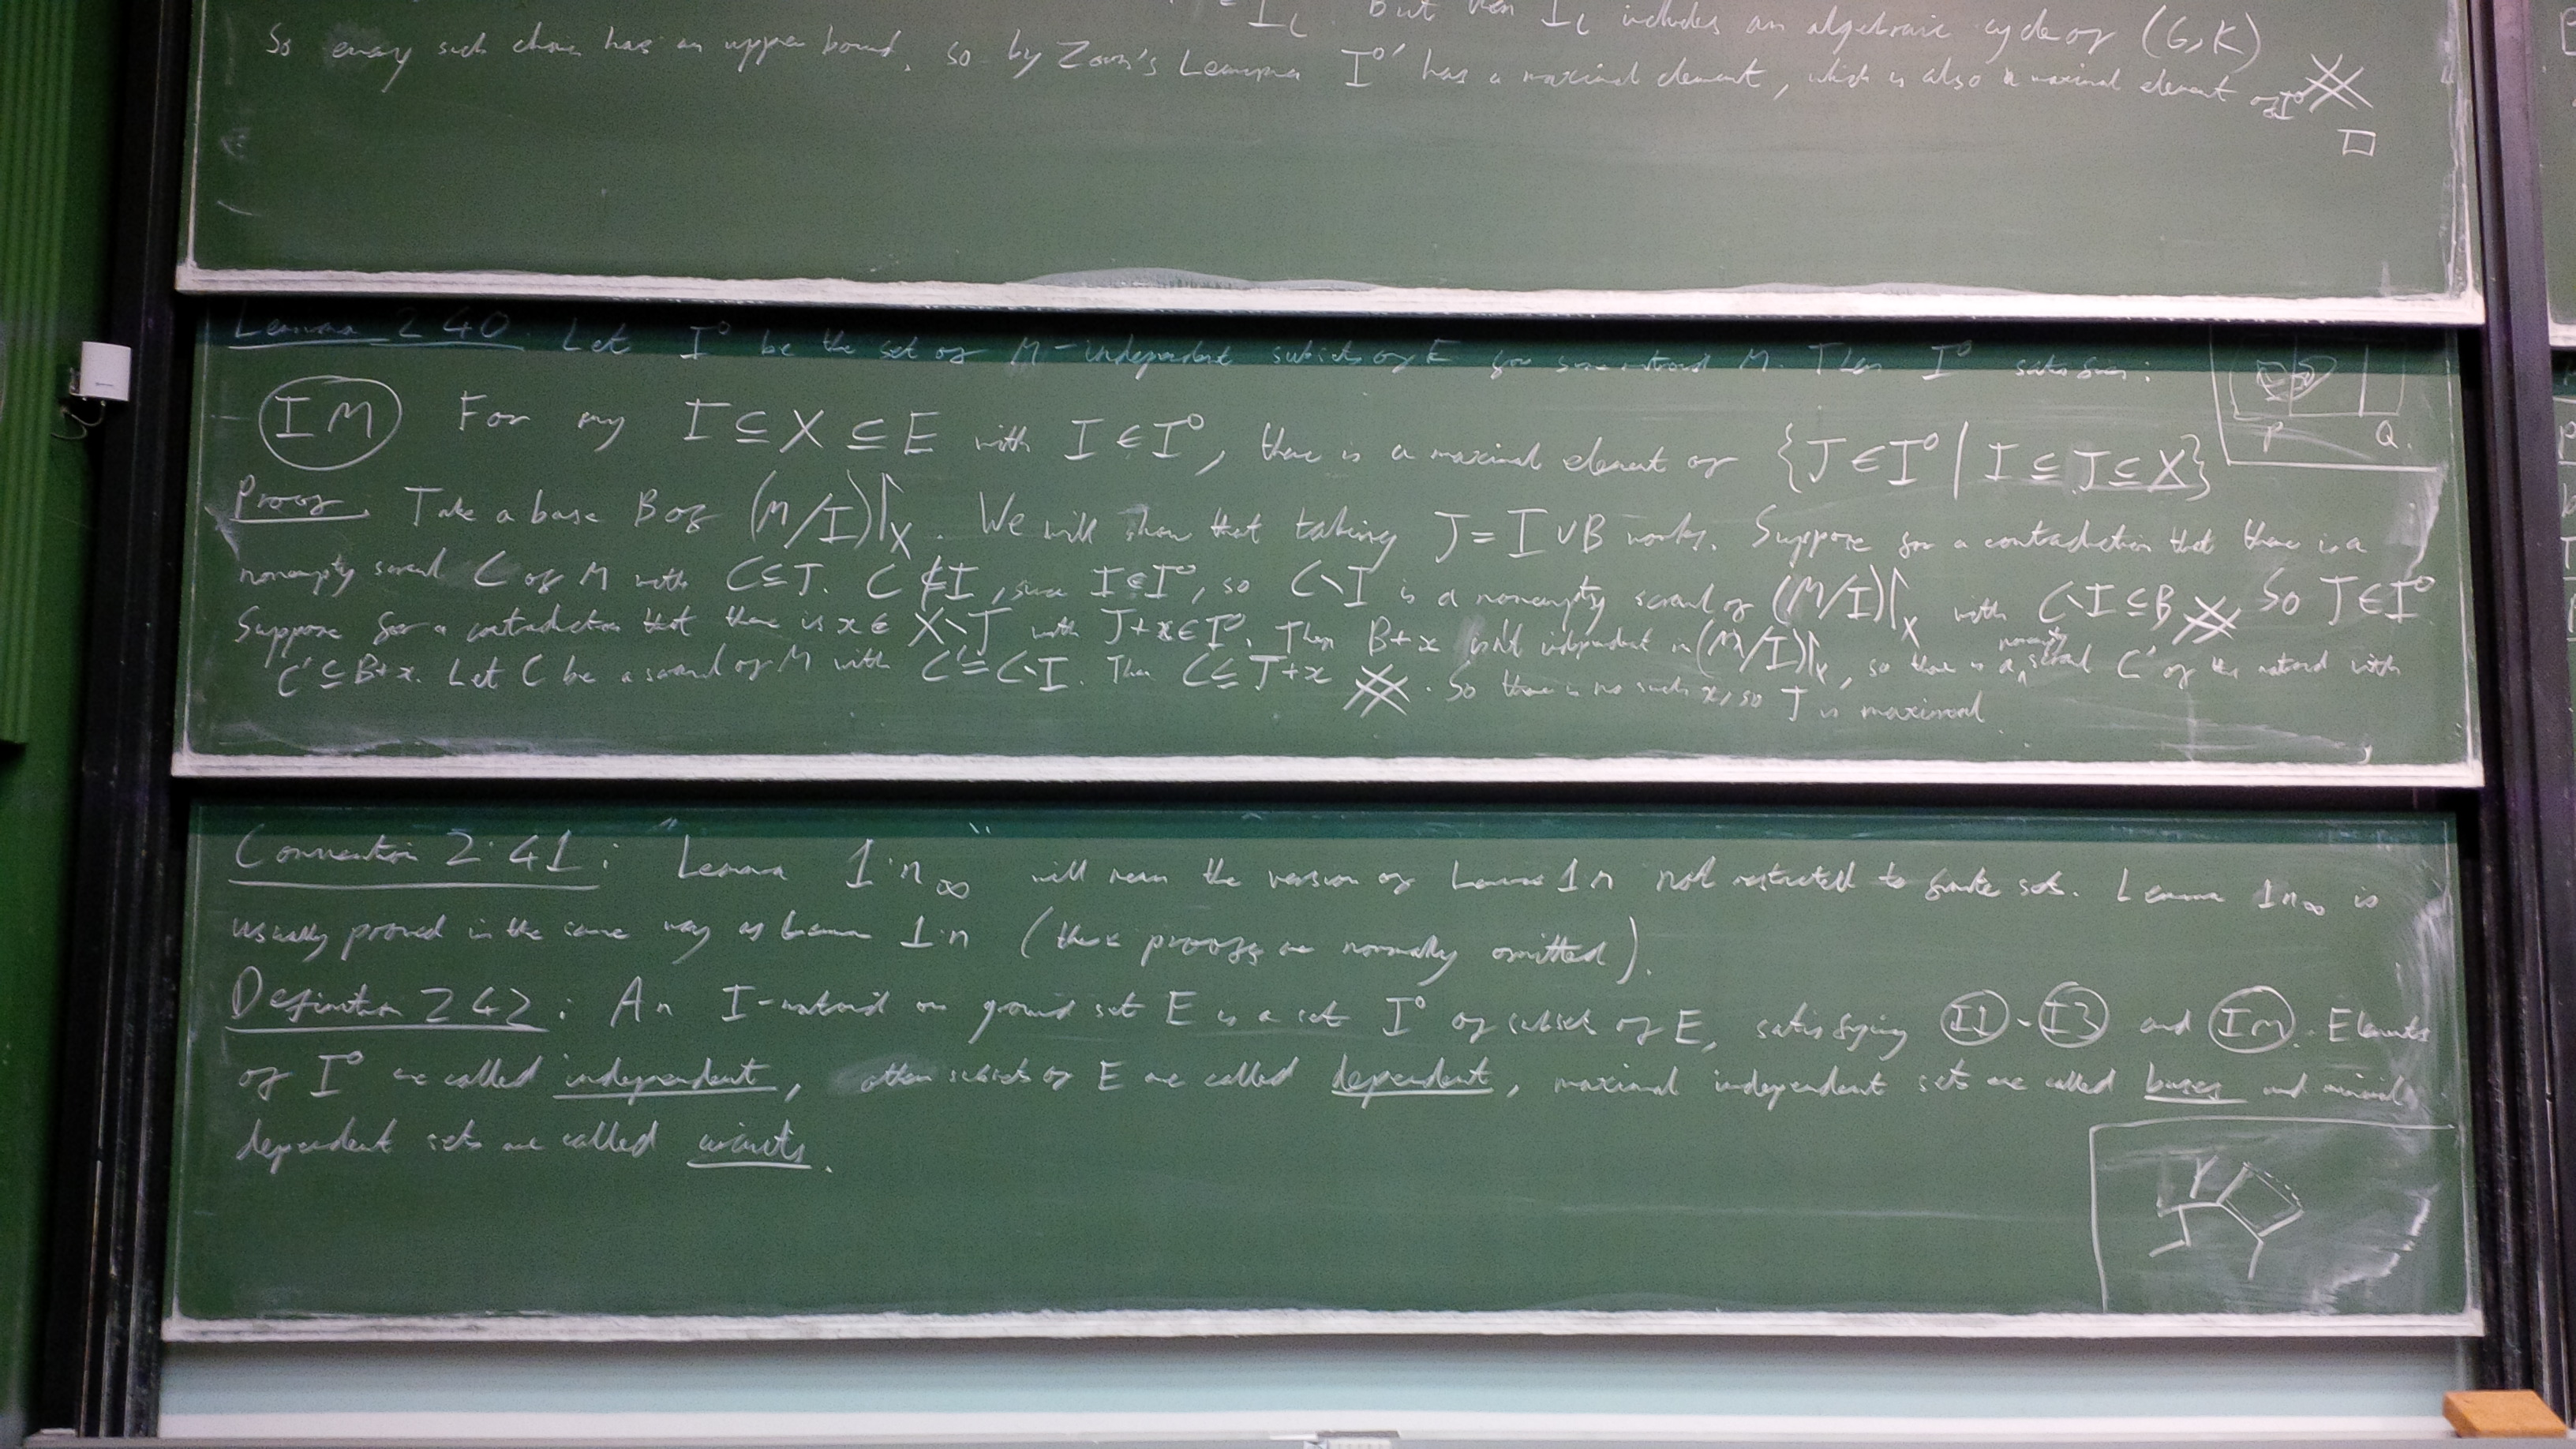 = I_L. But then I_L includes an algebraic cycle of (G,K)
So every such chain has an upper bound, so by Zorn's Lemma I°' has a maximal element, which is also a maximal element of I°
□
Lemma 2.40. Let I° be the set of M-independent subsets of E for some matroid M. Then I° satisfies:
(IM) For any I ⊆ X ⊆ E with I ∈ I°, there is a maximal element of {J ∈ I° | I ⊆ J ⊆ X}
P Q.
Proof. Take a base B of (M/I)↾X. We will show that taking J = I ∪ B works. Suppose for a contradiction that there is a
nonempty scrawl C of M with C ⊆ J. C ⊄ I, since I ∈ I°, so C∖I is a nonempty scrawl of (M/I)↾X with C∖I ⊆ B ※ So J ∈ I°
Suppose for a contradiction that there is x ∈ X∖J with J+x ∈ I°. Then B+x isn't independent in (M/I)↾X, so there is a nonempty scrawl C' of this matroid with
C' ⊆ B+x. Let C be a scrawl of M with C' = C∖I. Then C ⊆ J+x ※. So there is no such x, so J is maximal
Convention 2.41: "Lemma 1.n∞" will mean the version of Lemma 1.n not restricted to finite sets. Lemma 1.n∞ is
usually proved in the same way as Lemma 1.n (these proofs are normally omitted).
Definition 2.42: An I-matroid on ground set E is a set I° of subsets of E, satisfying (I1)-(I3) and (IM). Elements
of I° are called independent, other subsets of E are called dependent, maximal independent sets are called bases and minimal
dependent sets are called circuits.